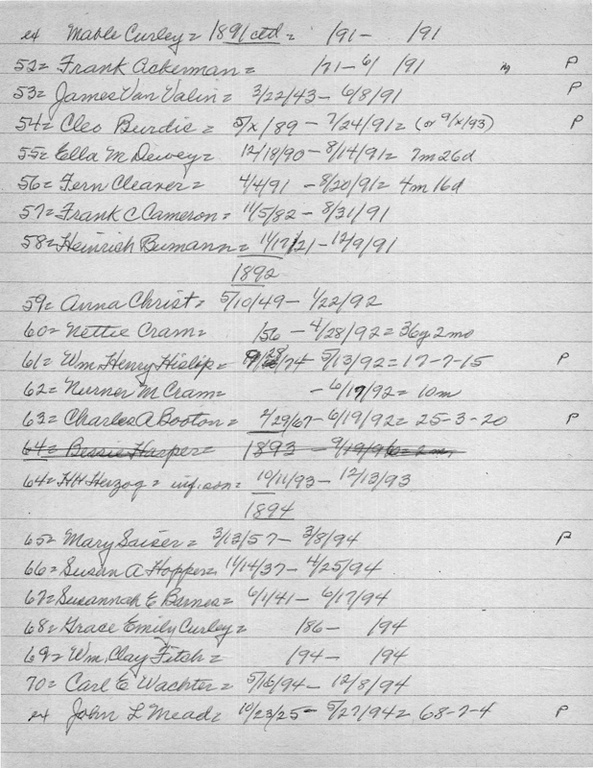 ex Mable Curley = 1891 ctd = /91 - /91
52 = Frank Ackerman = /71 - 6/ /91 m P
53 = James Van Valin = 3/22/43 - 6/8/91 P
54 = Cleo Burdic = 5/x/89 - 7/24/91 = (or 9/x/93) P
55 = Ella M Dewey = 12/18/90 - 8/14/91 = 7m 26d
56 = Fern Cleaver = 4/4/91 - 8/20/91 = 4m 16d
57 = Frank C Cameron = 11/5/82 - 8/31/91
58 = Heinrich Bumann = 11/17/21 - 12/9/91
1892
59 = Anna Christ = 5/10/49 - 1/22/92
60 = Nettie Cram = /56 - 4/28/92 = 36y 2mo
61 = Wm Henry Hislip = /74 - 5/13/92 = 17-7-15 P
62 = Nurner M Cram = - 6/17/92 = 10m
63 = Charles A Booton = 2/29/67 - 6/19/92 = 25-3-20 P
64 = Bessie Harper = 1893 - 9/19/96 = 2m
64 = HH Herzog = inf. son = 10/11/93 - 12/13/93
1894
65 = Mary Saiser = 3/13/57 - 3/8/94 P
66 = Susan A Hopper = 11/14/37 - 4/25/94
67 = Susannah E Barnes = 6/1/41 - 6/17/94
68 = Grace Emily Curley = 186 - 194
69 = Wm. Clay Fitch = /94 - /94
70 = Carl E Wachter = 5/16/94 - 12/8/94
ex John L Mead = 10/23/25 - 5/27/94 = 68-7-4 P